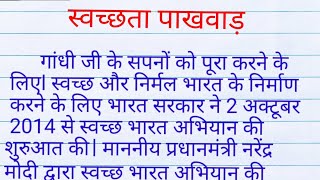 स्वच्छता पाखवाड़
गांधी जी के सपनों को पूरा करने के
लिए। स्वच्छ और निर्मल भारत के निर्माण
करने के लिए भारत सरकार ने 2 अक्टूबर
2014 से स्वच्छ भारत अभियान की
शुरुआत की। माननीय प्रधानमंत्री नरेंद्र
मोदी द्वारा स्वच्छ भारत अभियान की